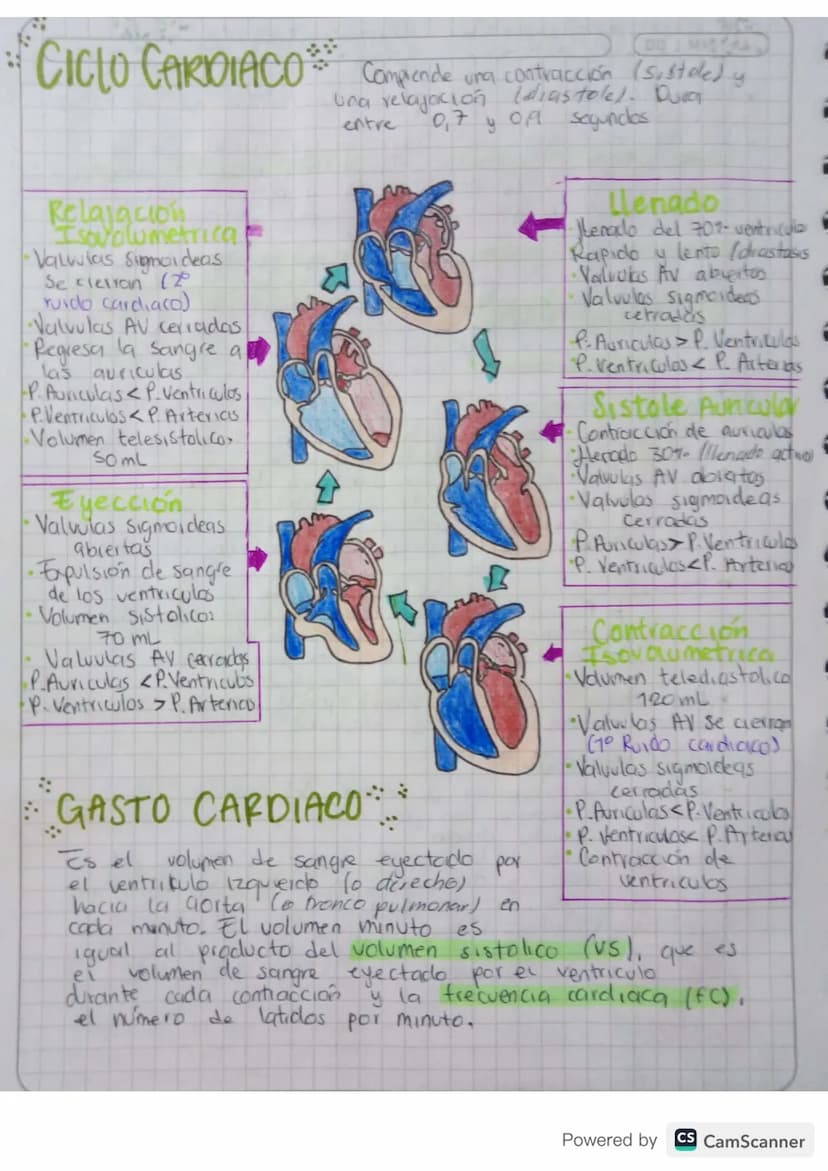 CICLO CARDIACO
Comprende una contracción (sístole) y
una relajación (diastole). Dura
entre 0,7 y 0,9 segundos
Relajación
Isovolumetrica
· Valvulas sigmoideas
se cierran (2º
ruido cardiaco)
· Valvulas AV cerradas
· Regresa la sangre a
las auriculas
· P. Auriculas < P. Ventriculos
· P. Ventriculos < P. Arterias
· Volumen telesistolico:
50 mL
Eyección
· Valvulas sigmoideas
abiertas
· Expulsión de sangre
de los ventriculos
· Volumen sistolico:
70 mL
· Valvulas AV cerradas
· P. Auriculas < P. Ventriculos
· P. Ventriculos > P. Arterias
Llenado
· Llenado del 70% ventriculo
Rapido y lento (diastasis
· Valvulas AV abiertas
· Valvulas sigmoideas
cerradas
· P. Auriculas > P. Ventriculos
· P. Ventriculos < P. Arterias
Sistole Auricular
· Contracción de auriculas
· Llenado 30% (llenado activo)
· Valvulas AV abiertas
· Valvulas sigmoideas
cerradas
· P. Auriculas > P. Ventriculo
· P. Ventriculos < P. Arteria
Contracción
Isovolumetrica
· Volumen telediastolico
120 mL
· Valvulas AV se cierran
(1º Ruido cardiaco)
· Valvulas sigmoideas
cerradas
· P. Auriculas < P. Ventriculo
· P. Ventriculos < P. Arteria
· Contracción de
ventriculos
GASTO CARDIACO
Es el volumen de sangre eyectado por
el ventrikulo izquierdo (o derecho)
hacia la aorta (o tronco pulmonar) en
cada minuto. El volumen minuto es
igual al producto del volumen sistolico (VS), que es
el volumen de sangre eyectado por el ventriculo
durante cada contracción y la frecuencia cardiaca (FC),
el número de latidos por minuto.
Powered by CS CamScanner